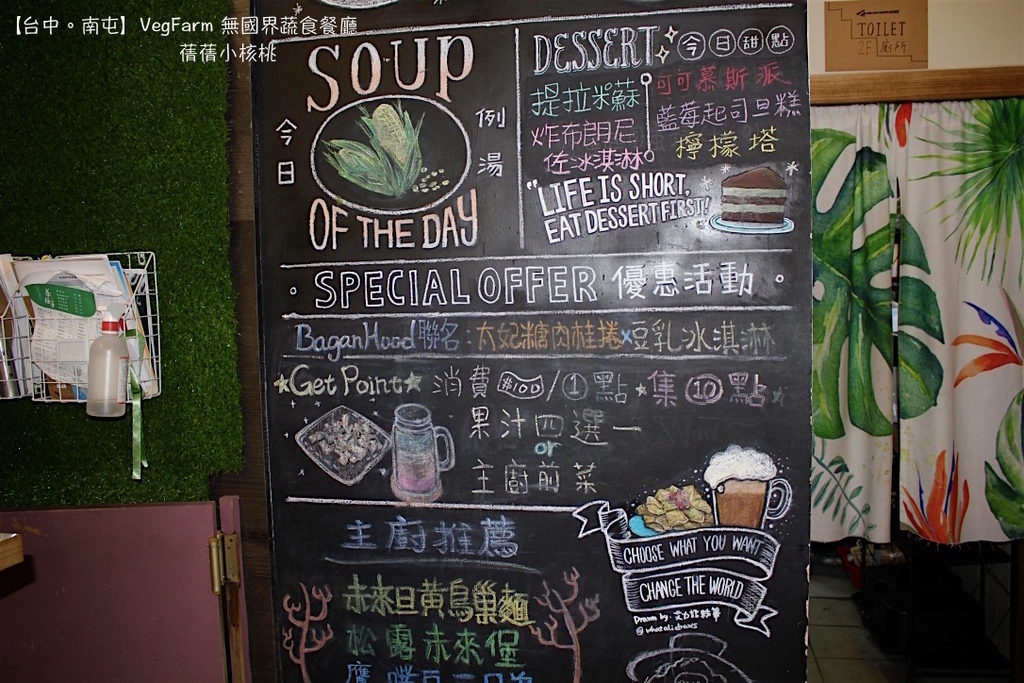 【台中。南屯】VegFarm 無國界蔬食餐廳
蓓蓓小核桃
SOUP
今日
例湯
OF THE DAY
DESSERT 今日甜點
提拉米蘇
炸布朗尼
佐冰淇淋
可可慕斯派
藍莓起司旦糕
檸檬塔
"LIFE IS SHORT,
EAT DESSERT FIRST!"
TOILET
2F 廁所
· SPECIAL OFFER 優惠活動 ·
BaganHood聯名:太妃糖肉桂捲x豆乳冰淇淋
★Get Point★ 消費 $100/①點★集⑩點★
果汁四選一
or
主廚前菜
主廚推薦
未來旦黃烏巢麵
松露未來堡
CHOOSE WHAT YOU WANT
CHANGE THE WORLD
Drawn by.
@whataliedraws